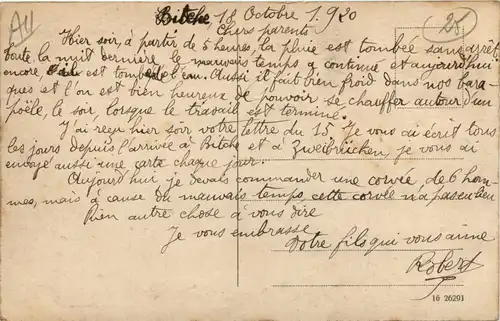 Bitche 18 Octobre 1.920
A11
25
Chers parents
Hier soir, à partir de 5 heures, la pluie est tombée sans arrêt
toute la nuit dernière le mauvais temps a continué et aujourd'hui
encore est tombée l'eau. Aussi il fait bien froid dans nos bara-
ques et l'on est bien heureux de pouvoir se chauffer autour d'un
poële, le soir, lorsque le travail est terminé.
J'ai reçu hier soir votre lettre du 15. Je vous ai écrit tous
les jours depuis l'arrivée à Bitche et à Zweibrücken, je vous ai
envoyé aussi une carte chaque jour.
Aujourd'hui je devais commander une corvée, de 6 hom-
mes, mais à cause du mauvais temps, cette corvée n'a pas eu lieu
Rien autre chose à vous dire
Je vous embrasse
Votre fils qui vous aime
Robert
16 26291